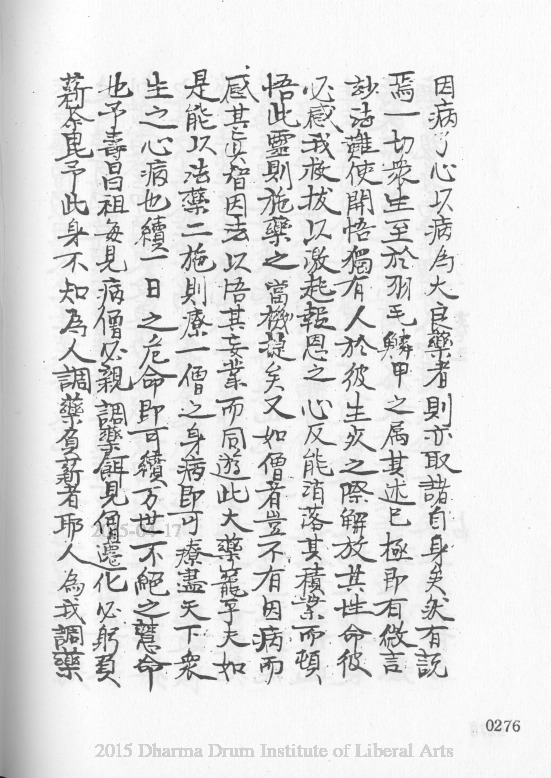 因病了心以病為大良藥者則亦取諸自身矣然有說
焉一切衆生至於羽毛鱗甲之属其述已極即有微言
玅法難使開悟獨有人於彼生死之際解放其性命彼
必感我救拔以激起報恩之心反能消落其積業而頓
悟此靈則施藥之當機莫矣又如僧者豈不有因病而
感其真智因法以悟其妄業而同遊此大藥籠乎夫如
是能以法藥二施則療一僧之身病即可療盡天下衆
生之心病也續一日之危命即可續万世不絕之慧命
也予壽昌祖每見病僧必親調藥餌見僧遷化必躬負
薪余毘予此身不知為人調藥負薪者耶人為我調藥
0276
2015-04-17
2015 Dharma Drum Institute of Liberal Arts